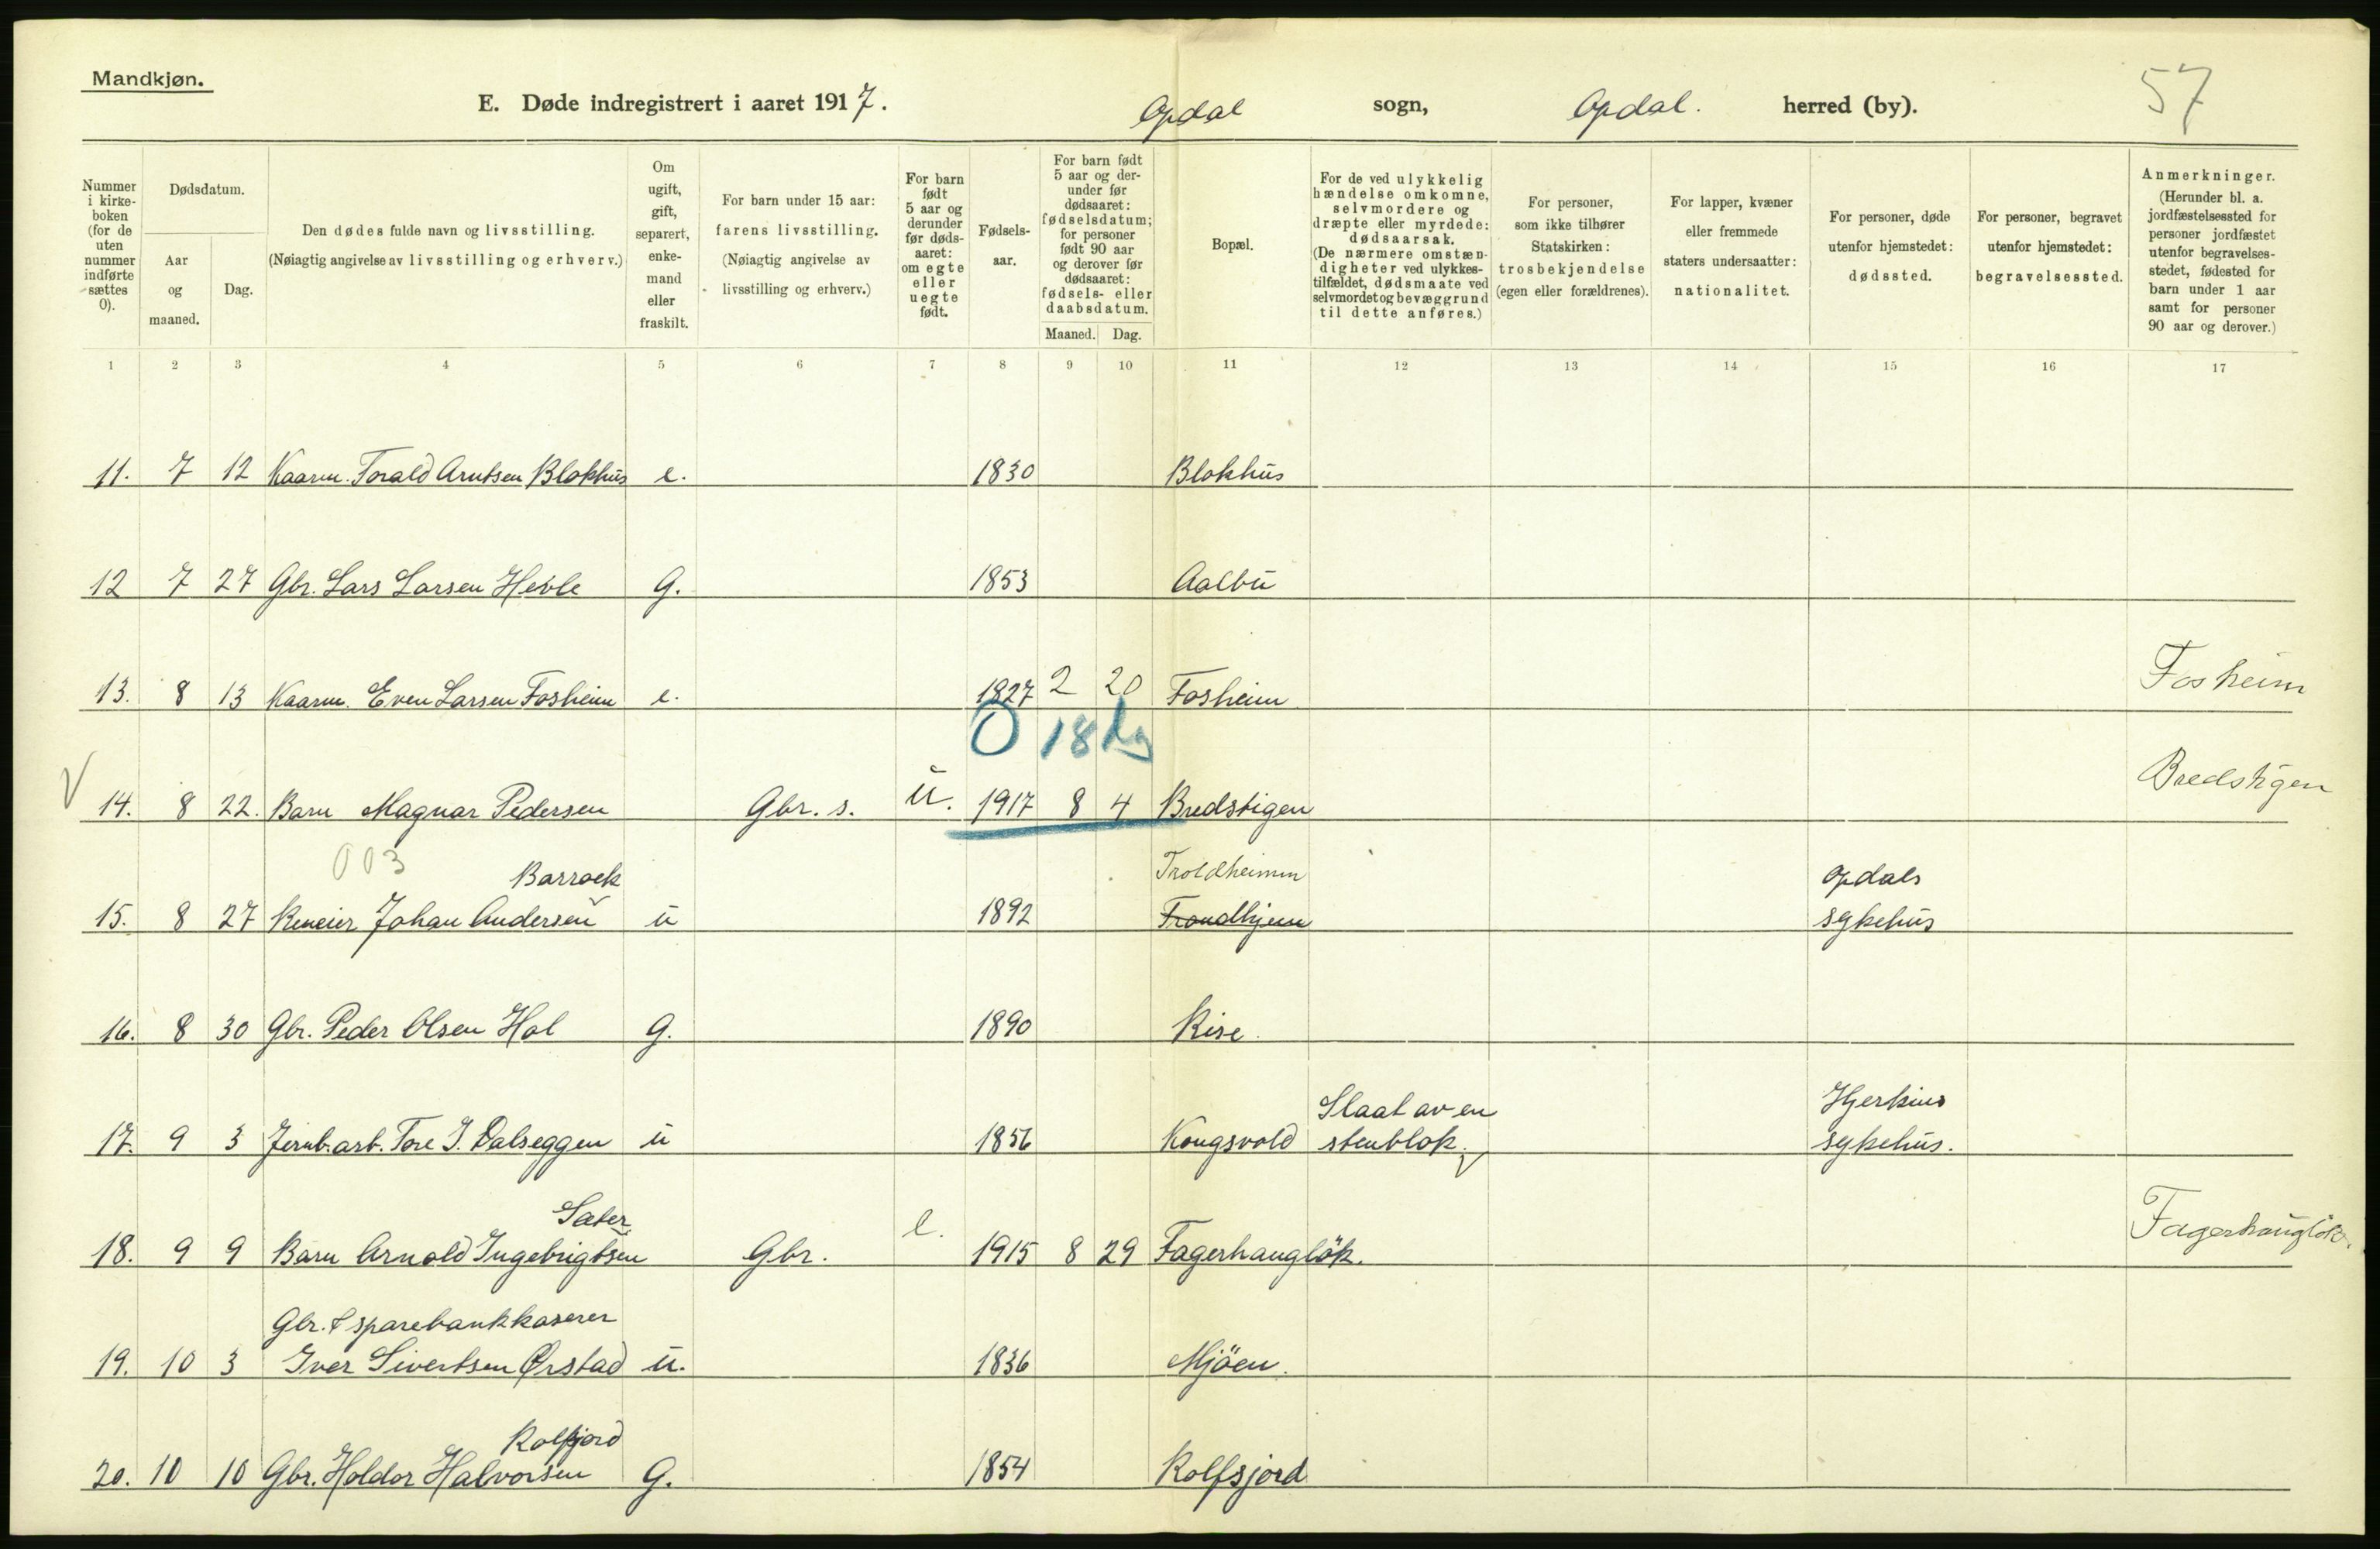 Mandkjøn.
E. Døde indregistrert i aaret 1917. Opdal sogn, Opdal. herred (by). 57
Nummer i kirke-boken (for de uten nummer indførte sættes 0).
Dødsdatum.
Aar og maaned.
Dag.
Den dødes fulde navn og livsstilling.
(Nøiagtig angivelse av livsstilling og erhverv.)
Om ugift, gift, separert, enke-mand eller fraskilt.
For barn under 15 aar: farens livsstilling.
(Nøiagtig angivelse av livsstilling og erhverv.)
For barn født 5 aar og derunder før døds-aaret: om egte eller uegte født.
Fødsels-aar.
For barn født 5 aar og der-under før dødsaaret: fødselsdatum; for personer født 90 aar og derover før dødsaaret: fødsels- eller daabsdatum.
Maaned. Dag.
Bopæl.
For de ved ulykkelig hændelse omkomne, selvmordere og dræpte eller myrdede: dødsaarsak. (De nærmere omstæn-digheter ved ulykkes-tilfældet, dødsmaate ved selvmordet og bevæggrund til dette anføres.)
For personer, som ikke tilhører Statskirken: trosbekjendelse (egen eller forældrenes).
For lapper, kvæner eller fremmede staters undersaatter: nationalitet.
For personer, døde utenfor hjemstedet: dødssted.
For personer, begravet utenfor hjemstedet: begravelsessted.
Anmerkninger. (Herunder bl. a. jordfæstelsessted for personer jordfæstet utenfor begravelses-stedet, fødested for barn under 1 aar samt for personer 90 aar og derover.)
1 2 3 4 5 6 7 8 9 10 11 12 13 14 15 16 17
11. 7 12 Kaarm. Torald Arntsen Blokhus e. 1830 Blokhus
12 7 27 Gbr. Lars Larsen Hevle G. 1853 Aalbu
13. 8 13 Kaarm. Even Larsen Fosheim e. 1827 2 20 Fosheim Fosheim
0 18 dg
V 14. 8 22. Barn Magnar Pedersen Gbr. s. u. 1917 8 4 Bredstigen Bredstigen
003 Barrack Troldheimen Opdals
15. 8 27 Reneier Johan Andersen u 1892 Trondhjem sykehus
16. 8 30 Gbr. Peder Olsen Hol G. 1890 Rise.
Slaat av en Hjerkins
17. 9 3 Jernb.arb. Tore J. Dalseggen u 1856 Kongsvold stenblok. V sykehus.
Sæter
18. 9 9 Barn Arnold Ingebrigtsen Gbr. e. 1915 8 29 Fagerhaugløk. Fagerhaugløk.
Gbr. & sparebankkaserer
19. 10 3 Iver Sivertsen Ørstad u. 1836 Mjöen.
Rolfsjord
20. 10 10 Gbr. Holdor Halvorsen G. 1854 Rolfsjord